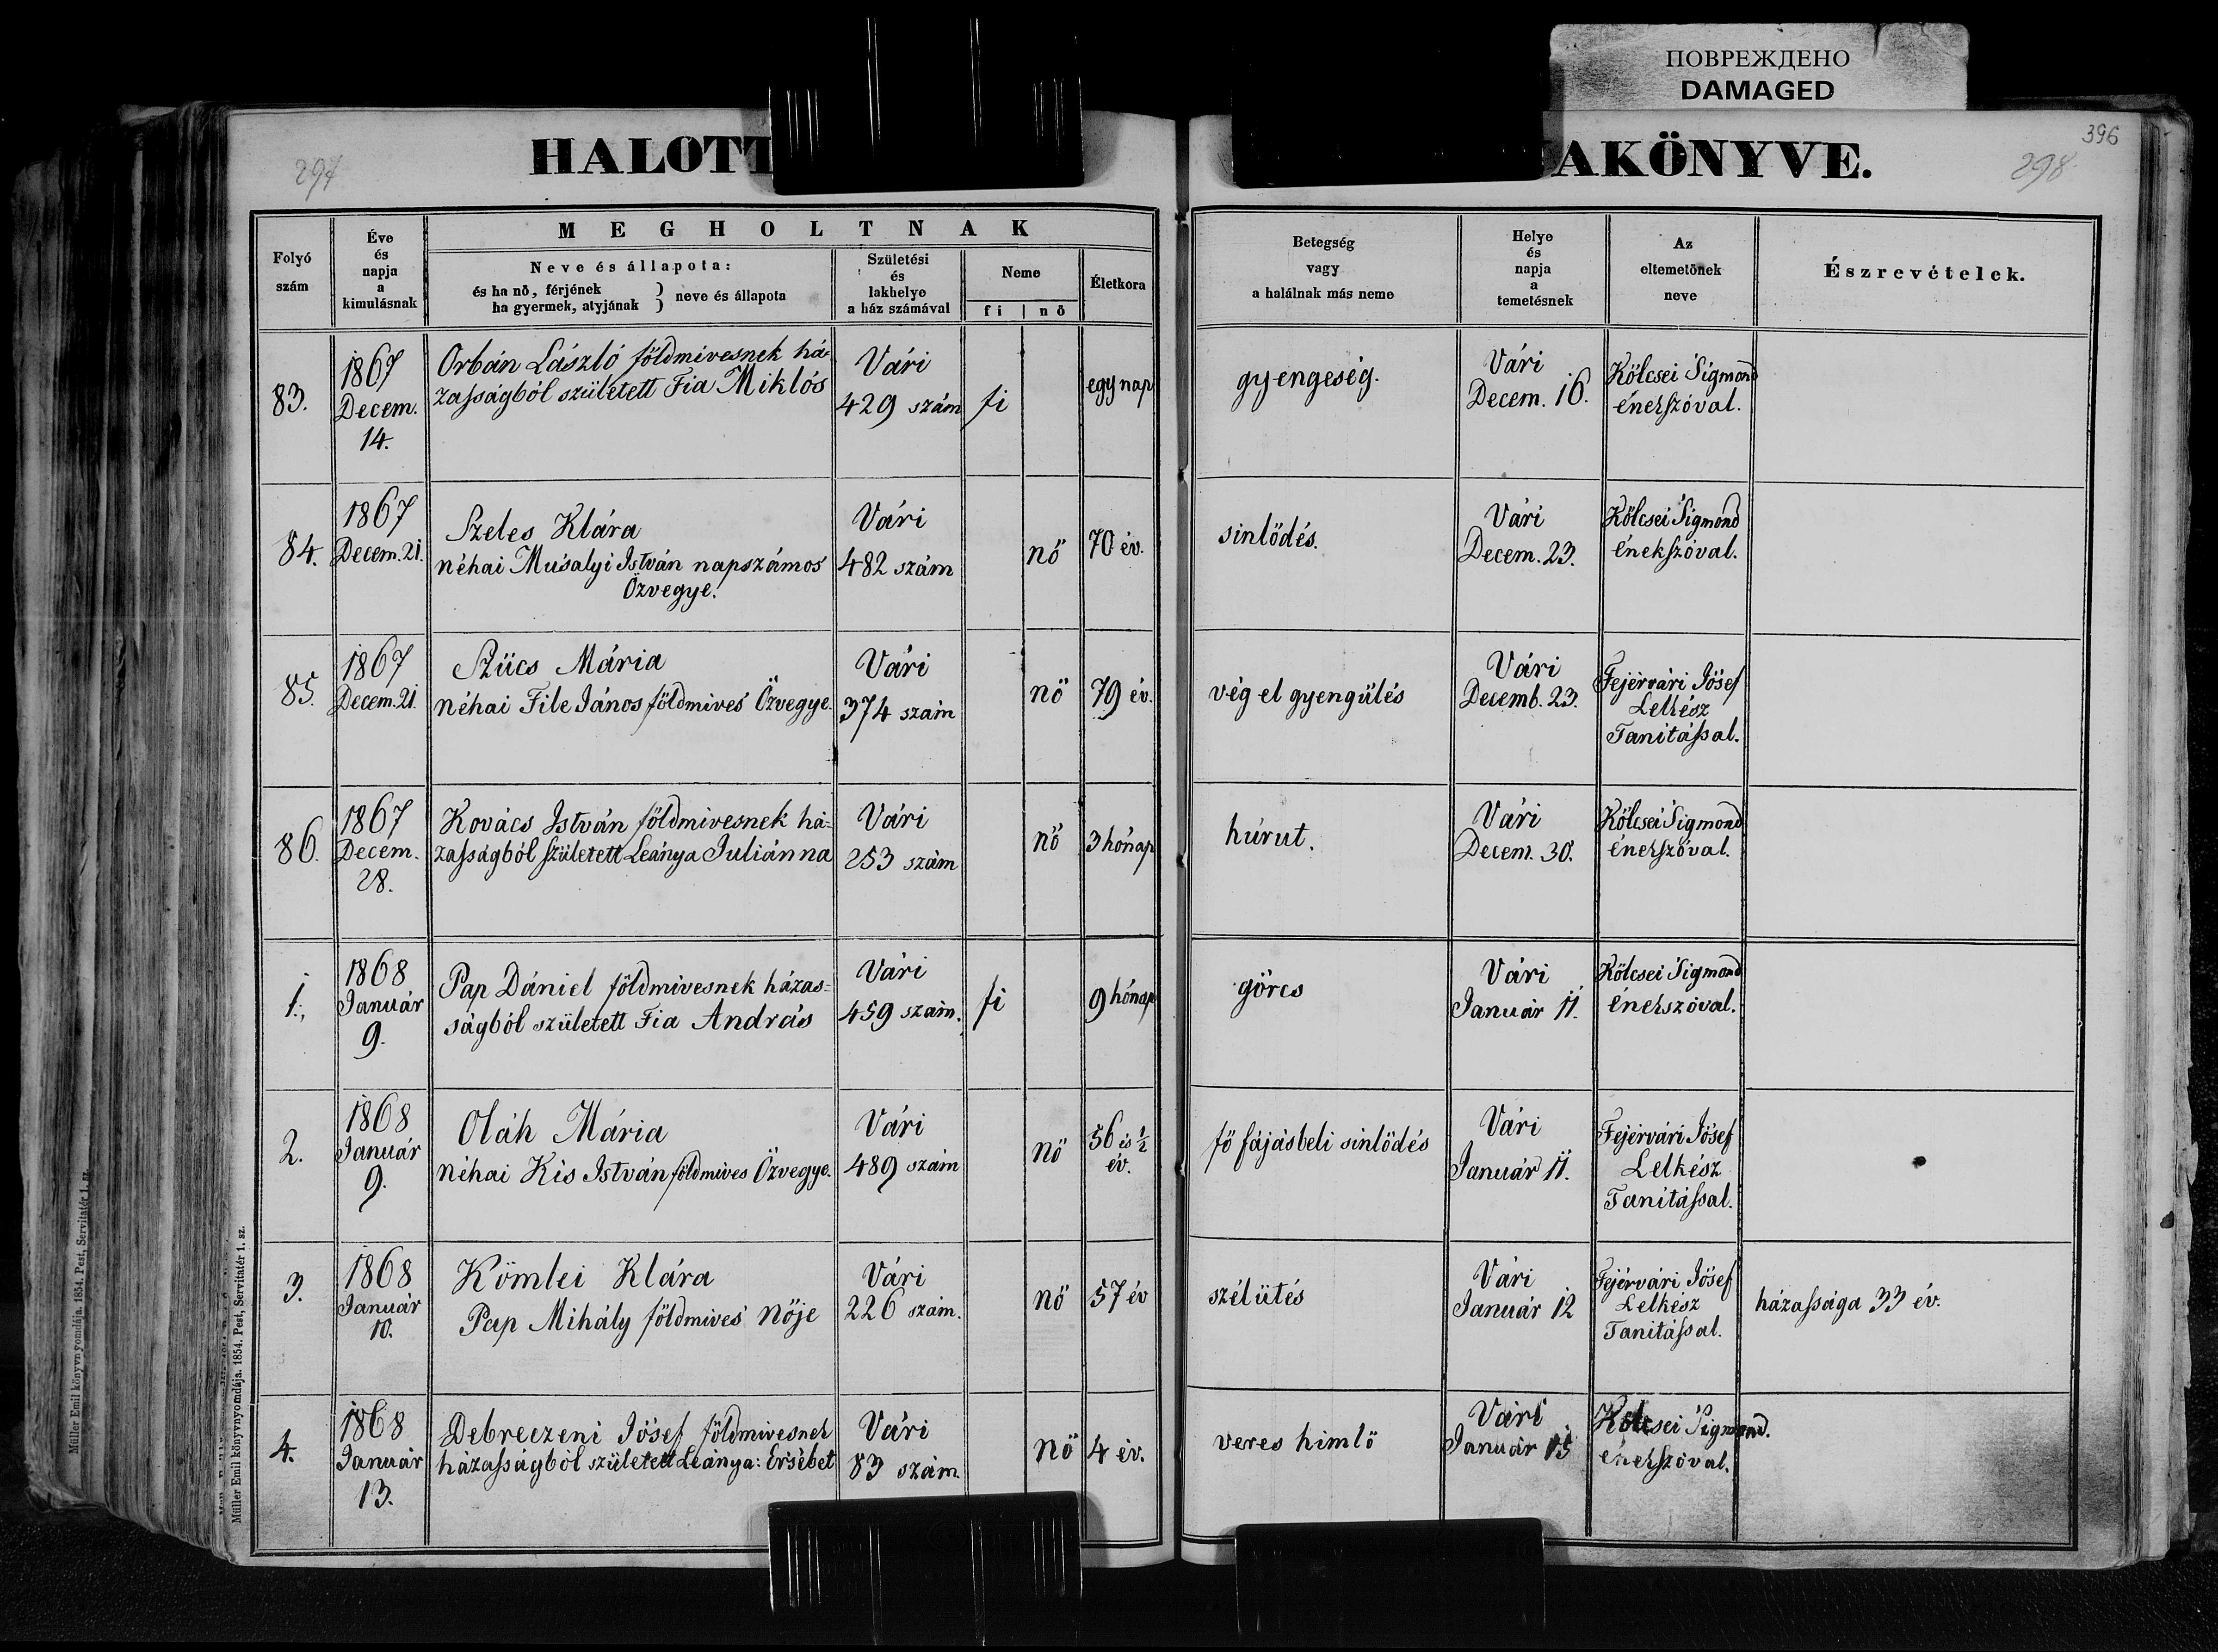 ПОВРЕЖДЕНО
DAMAGED
396
297
298
HALOTT
AKÖNYVE.
Folyó
szám
Éve
és
napja
a
kimulásnak
MEGHOLTNAK
Neve és állapota:
és ha nö, férjének
ha gyermek, atyjának } neve és állapota
Születési
és
lakhelye
a ház számával
Neme
fi | nö
Életkora
Betegség
vagy
a halálnak más neme
Helye
és
napja
a
temetésnek
Az
eltemetönek
neve
Észrevételek.
83.
1867
Decem.
14.
Orbán László földmivesnek há-
zasságból született Fia Miklós
Vári
429 szám
fi
egy nap
gyengeség.
Vári
Decem. 16.
Kölcsei Sigmond
énekszóval.
84.
1867
Decem. 21.
Szeles Klára
néhai Musalyi István napszámos
Özvegye.
Vári
482 szám
nő
70 év.
sinlödés.
Vári
Decem. 23.
Kölcsei Sigmond
énekszóval.
85.
1867
Decem. 21.
Szücs Mária
néhai File János földmives Özvegye.
Vári
374 szám
nö
79 év.
vég el gyengülés
Vári
Decemb. 23.
Fejérvári Jósef
Lelkész
Tanitással.
86.
1867
Decem.
28.
Kovács István földmivesnek há-
zasságból született Leánya Juliánna
Vári
253 szám
nő
3 hónap
húrut.
Vári
Decem. 30.
Kölcsei Sigmond
énekszóval.
1.
1868
Január
9.
Pap Dániel földmivesnek házas=
ságból született Fia András
Vári
459 szám.
fi
9 hónap
görcs
Vári
Január 11.
Kölcsei Sigmond
énekszóval.
2.
1868
Január
9.
Oláh Mária
néhai Kis István földmives Özvegye.
Vári
489 szám
nö
56 és ½
év.
fö fájásbeli sinlödés
Vári
Január 11.
Fejérvári Jósef
Lelkész
Tanitással.
3.
1868
Január
10.
Kömlei Klára
Pap Mihály földmives Nöje
Vári
226 szám.
nö
57 év
szélütés
Vári
Január 12
Fejérvári Jósef
Lelkész
Tanitással.
házassága 33 év.
4.
1868
Január
13.
Debreczeni Jósef földmivesnek
házasságból született Leánya: Ersébet
Vári
83 szám.
nö
4 év.
veres himlö
Vári
Január 15
Kölcsei Sigmond.
énekszóval.
Müller Emil könyvnyomdája. 1854. Pest, Servitatér 1. sz.
Müller Emil könyvnyomdája. 1854. Pest, Servitatér 1. sz.